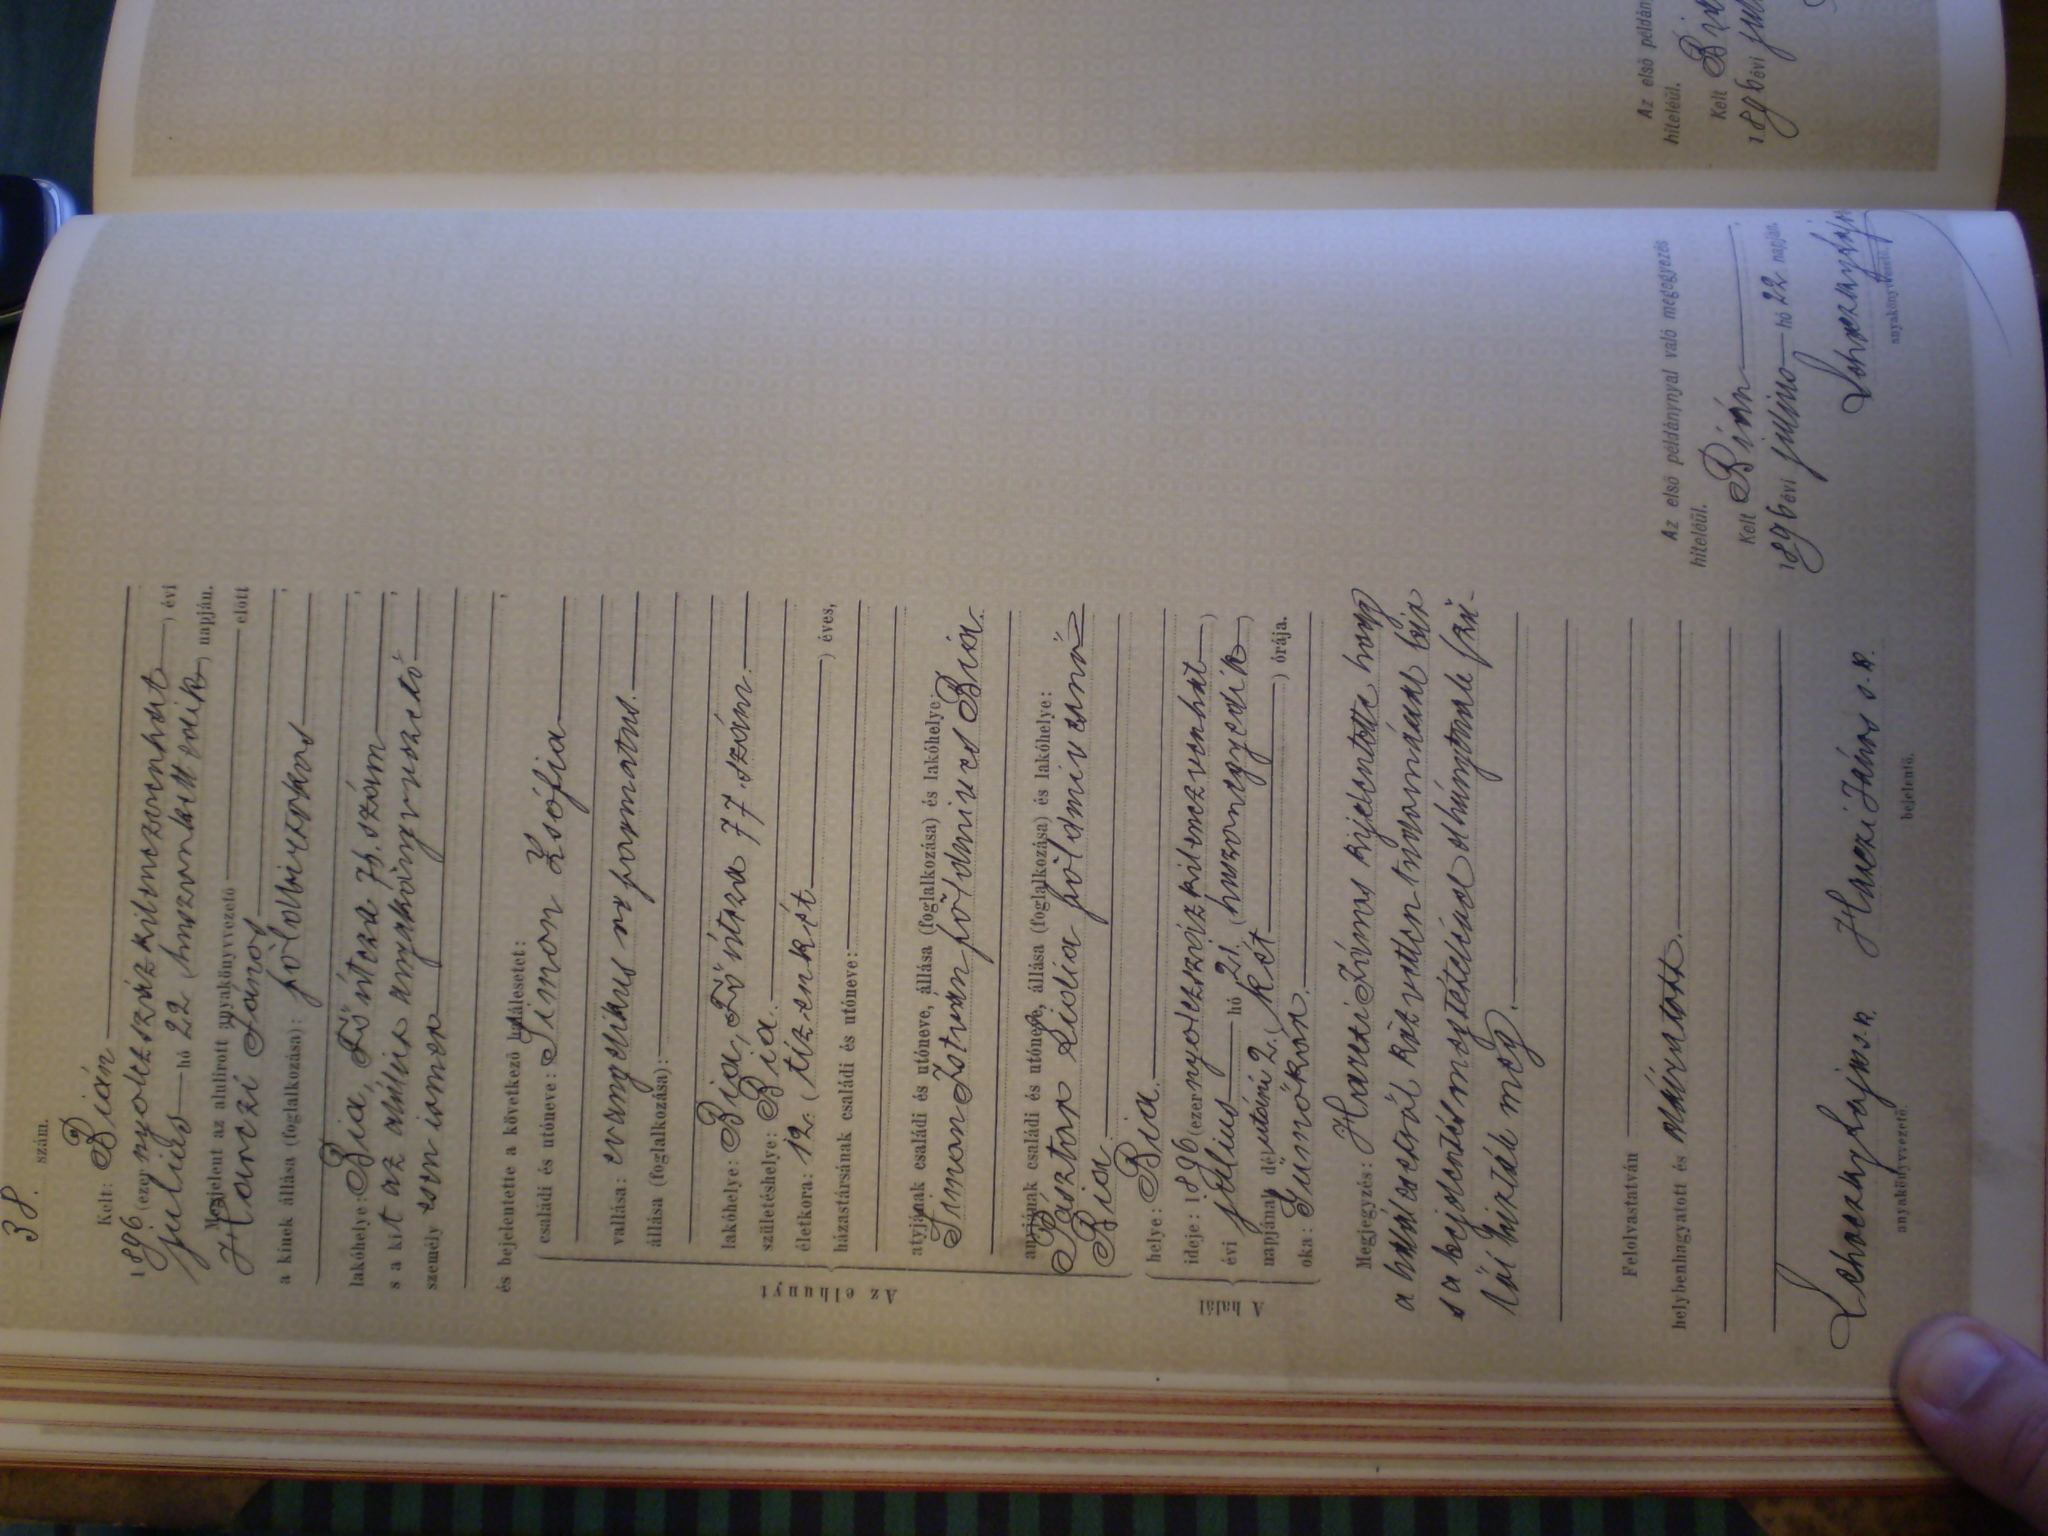 38. szám.
Kelt: Bián
1896 (ezer nyolczszázkilenczvenhat), évi
julius hó 22 (huszonkettedik) napján.
Megjelent az alulirott anyakönyvvezető előtt
Haraszi János
a kinek állása (foglalkozása): földbirtokos;
lakóhelye: Bia, Fő útcza 76. szám;
s a kit az alulirt anyakönyvvezető;
személyesen ismer
és bejelentette a következő halálesetet:;
Az elhunyt
családi és utóneve: Simon Zsófia
vallása: evangelikus reformatus.
állása (foglalkozása):
lakóhelye: Bia, Fő útcza 77. szám.
születéshelye: Bia.
életkora: 12. (tizenkét) éves,
házastársának családi és utóneve:
atyjának családi és utóneve, állása (foglalkozása) és lakóhelye:
Simon István földmives Bia.
anyjának családi és utóneve, állása (foglalkozása) és lakóhelye:
Pásztor Lidia földmivesnő
Bia.
A halál
helye: Bia.
ideje: 1896 (ezernyolczszázkilenczvenhat)
évi julius hó 21. (huszonegyedik)
napjának délutáni 2. (két) órája.
oka:
Megjegyzés: János kijelentette hogy
a halálesetről közvetlen tudomással bir
s a bejelentés megtételével elhúnytnak szü-
lői bizták meg.
Felolvastatván
helybenhagyott és aláiratott.
Lajos s. k.
anyakönyvvezető.
János s. k.
bejelentő.
Az első példánynyal való megegyezés
hiteléül.
Kelt Bián,
1896 évi julius hó 22 napján.
anyakönyvvezető.
Az első példán
hiteléül.
Kelt
1896 évi